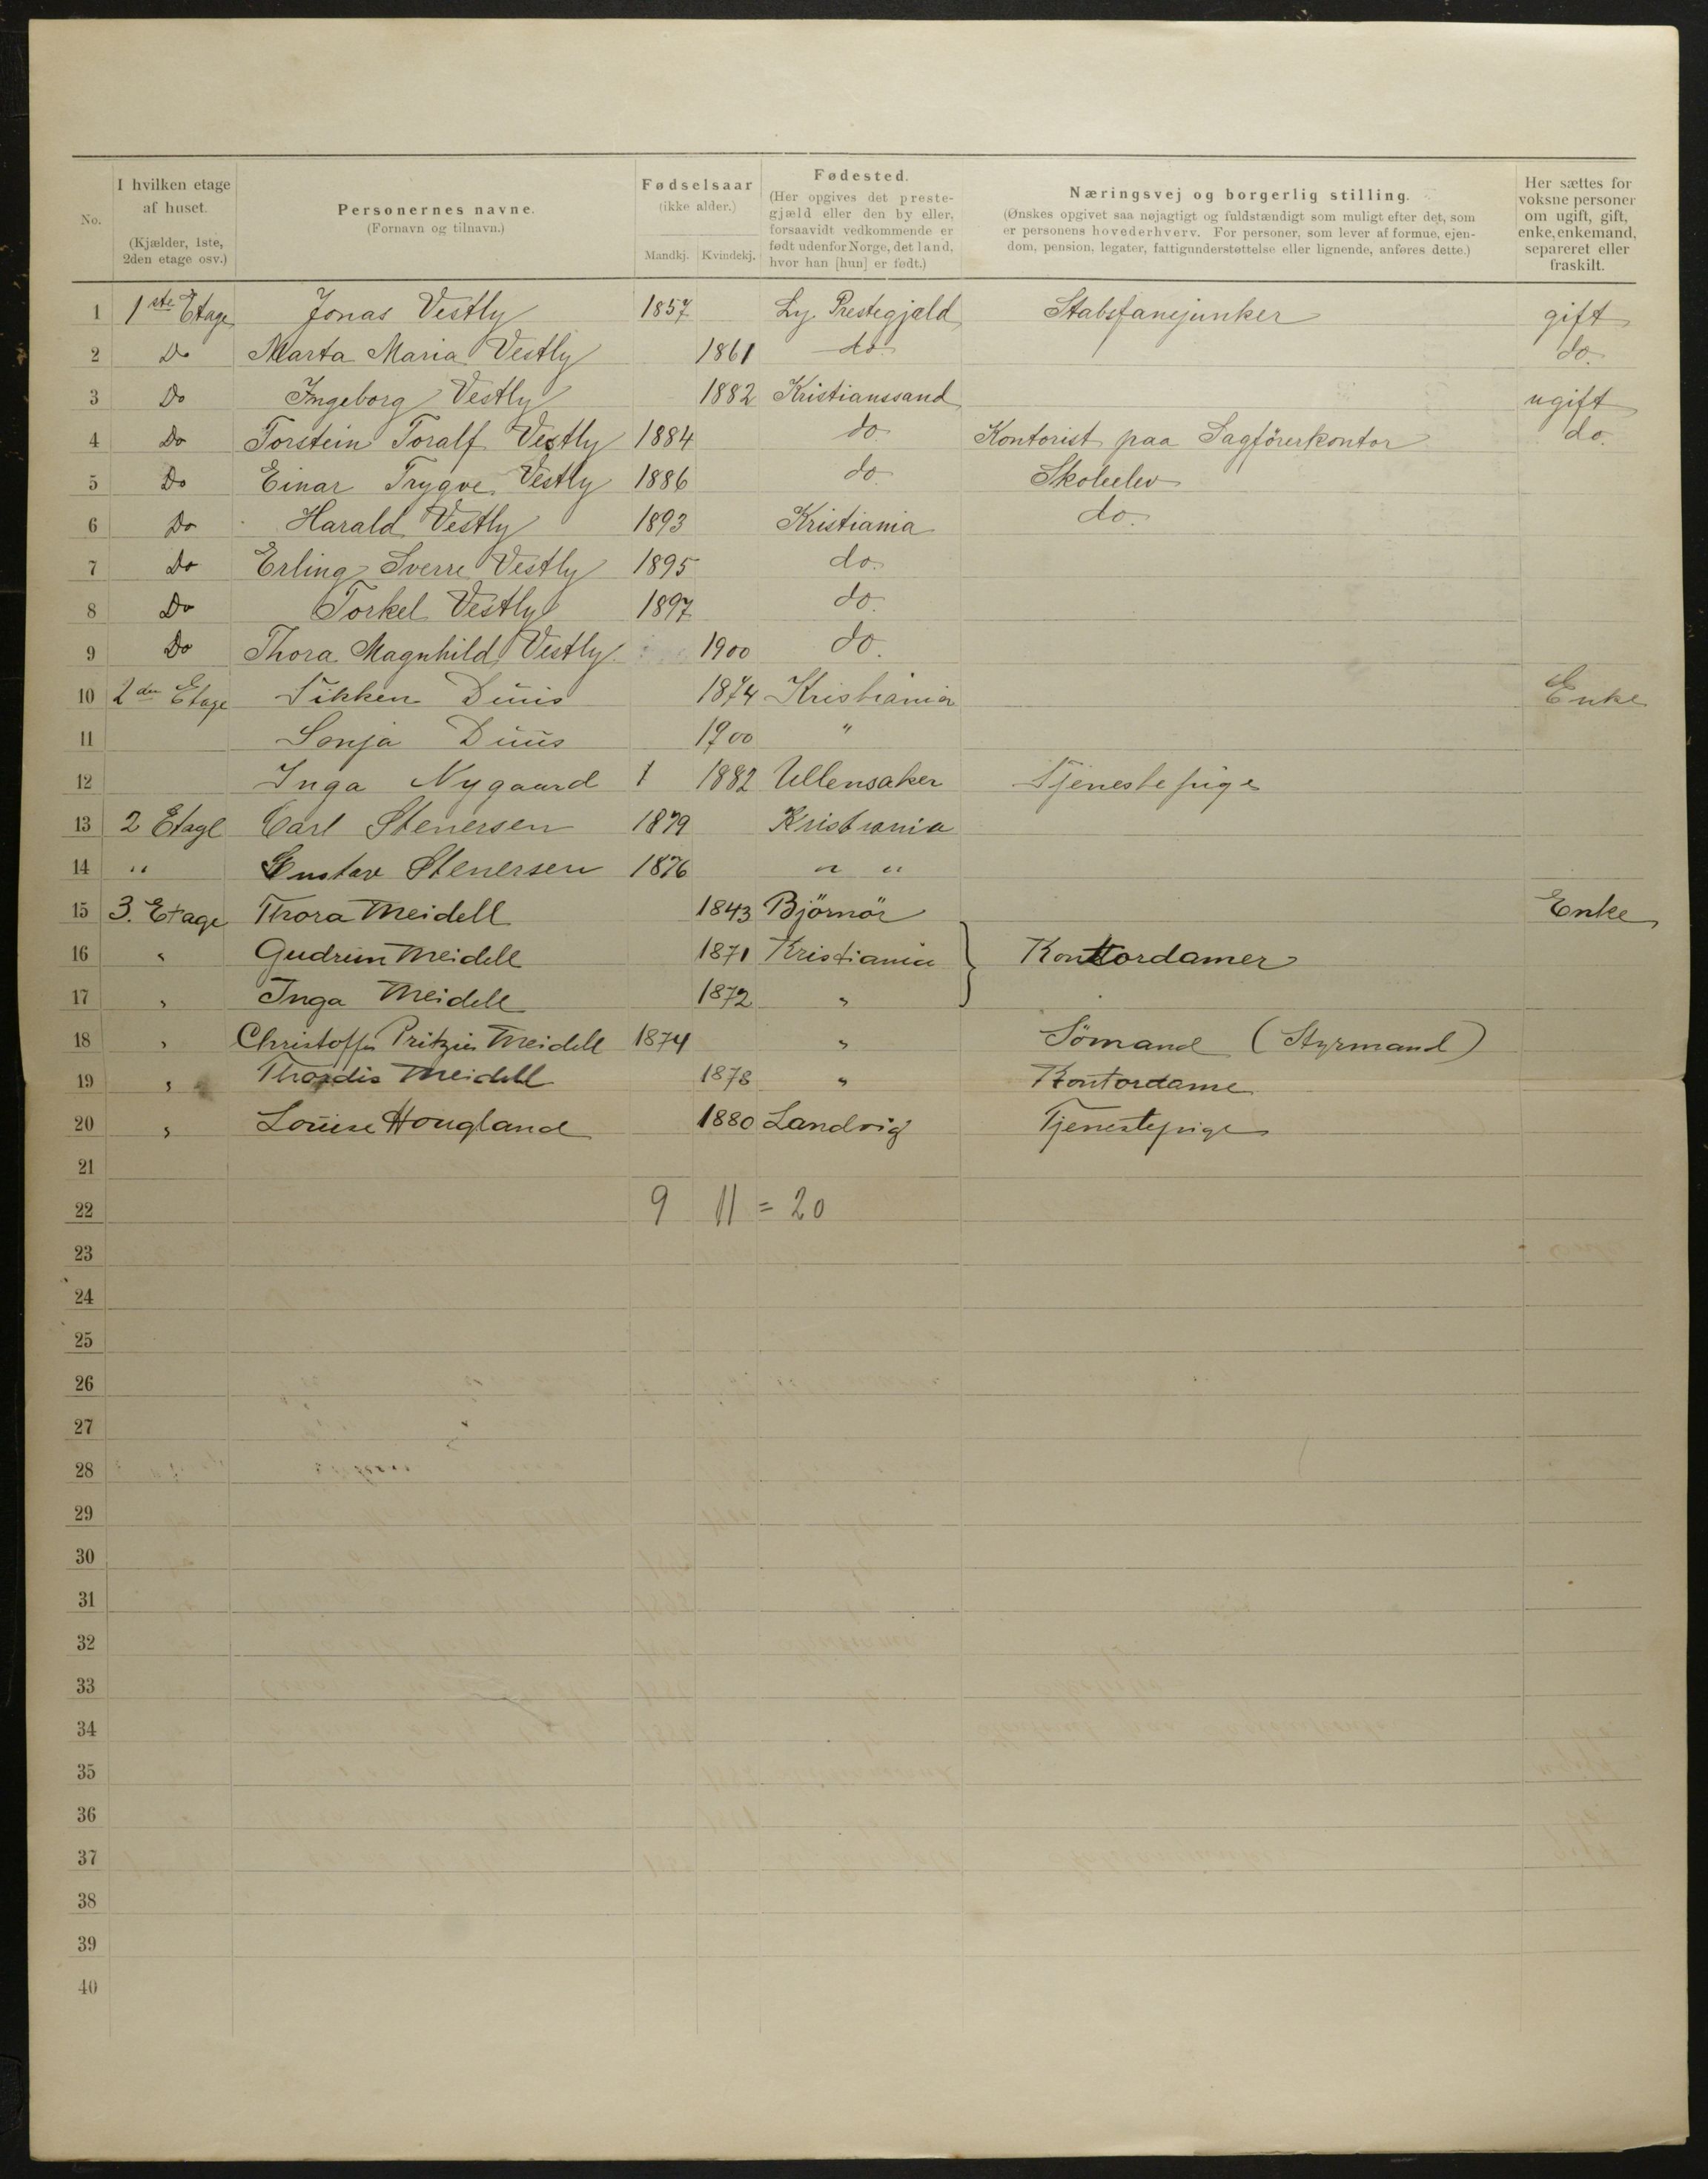 No.
I hvilken etage af huset. (Kjælder, 1ste, 2den etage osv.)
Personernes navne. (Fornavn og tilnavn.)
Fødselsaar (ikke alder.) Mandkj. Kvindekj.
Fødested. (Her opgives det prestegjæld eller den by eller, forsaavidt vedkommende er født udenfor Norge, det land, hvor han [hun] er født.)
Næringsvej og borgerlig stilling. (Ønskes opgivet saa nøjagtigt og fuldstændigt som muligt efter det, som er personens hovederhverv. For personer, som lever af formue, ejendom, pension, legater, fattigunderstøttelse eller lignende, anføres dette.)
Her sættes for voksne personer om ugift, gift, enke, enkemand, separeret eller fraskilt.
1 1ste Etage Jonas Vestly 1857 Ly. Prestegjæld Stabsfanejunker gift
2 Do Marta Maria Vestly 1861 do. do.
3 Do Ingeborg Vestly 1882 Kristianssand ugift
4 Do Torstein Toralf Vestly 1884 do Kontorist paa Sagförerkontor do.
5 Do Einar Trygve Vestly 1886 do Skoleelev
6 Do Harald Vestly 1893 Kristiania do.
7 Do Erling Sverre Vestly 1895 do.
8 Do Torkel Vestly 1897 do.
9 Do Thora Magnhild Vestly 1900 do.
10 2den Etage Sikken Duus 1874 Kristiania Enke
11 Sonja Duus 1900 "
12 Inga Nygaard 1 1882 Ullensaker Tjenestepige
13 2 Etage Carl Stenersen 1879 Kristiania
14 " Gustav Stenersen 1876 " "
15 3. Etage Thora Meidell 1843 Björnör Enke
16 " Gudrun Meidell 1871 Kristiania } Kontordamer
17 " Inga Meidell 1872 "
18 " Christoffer Pritzier Meidell 1874 " Sömand (Styrmand)
19 " Thordis Meidell 1878 " Kontordame
20 " Louise Hougland 1880 Landvig Tjenestepige
21
22 9 11 = 20
23
24
25
26
27
28
29
30
31
32
33
34
35
36
37
38
39
40